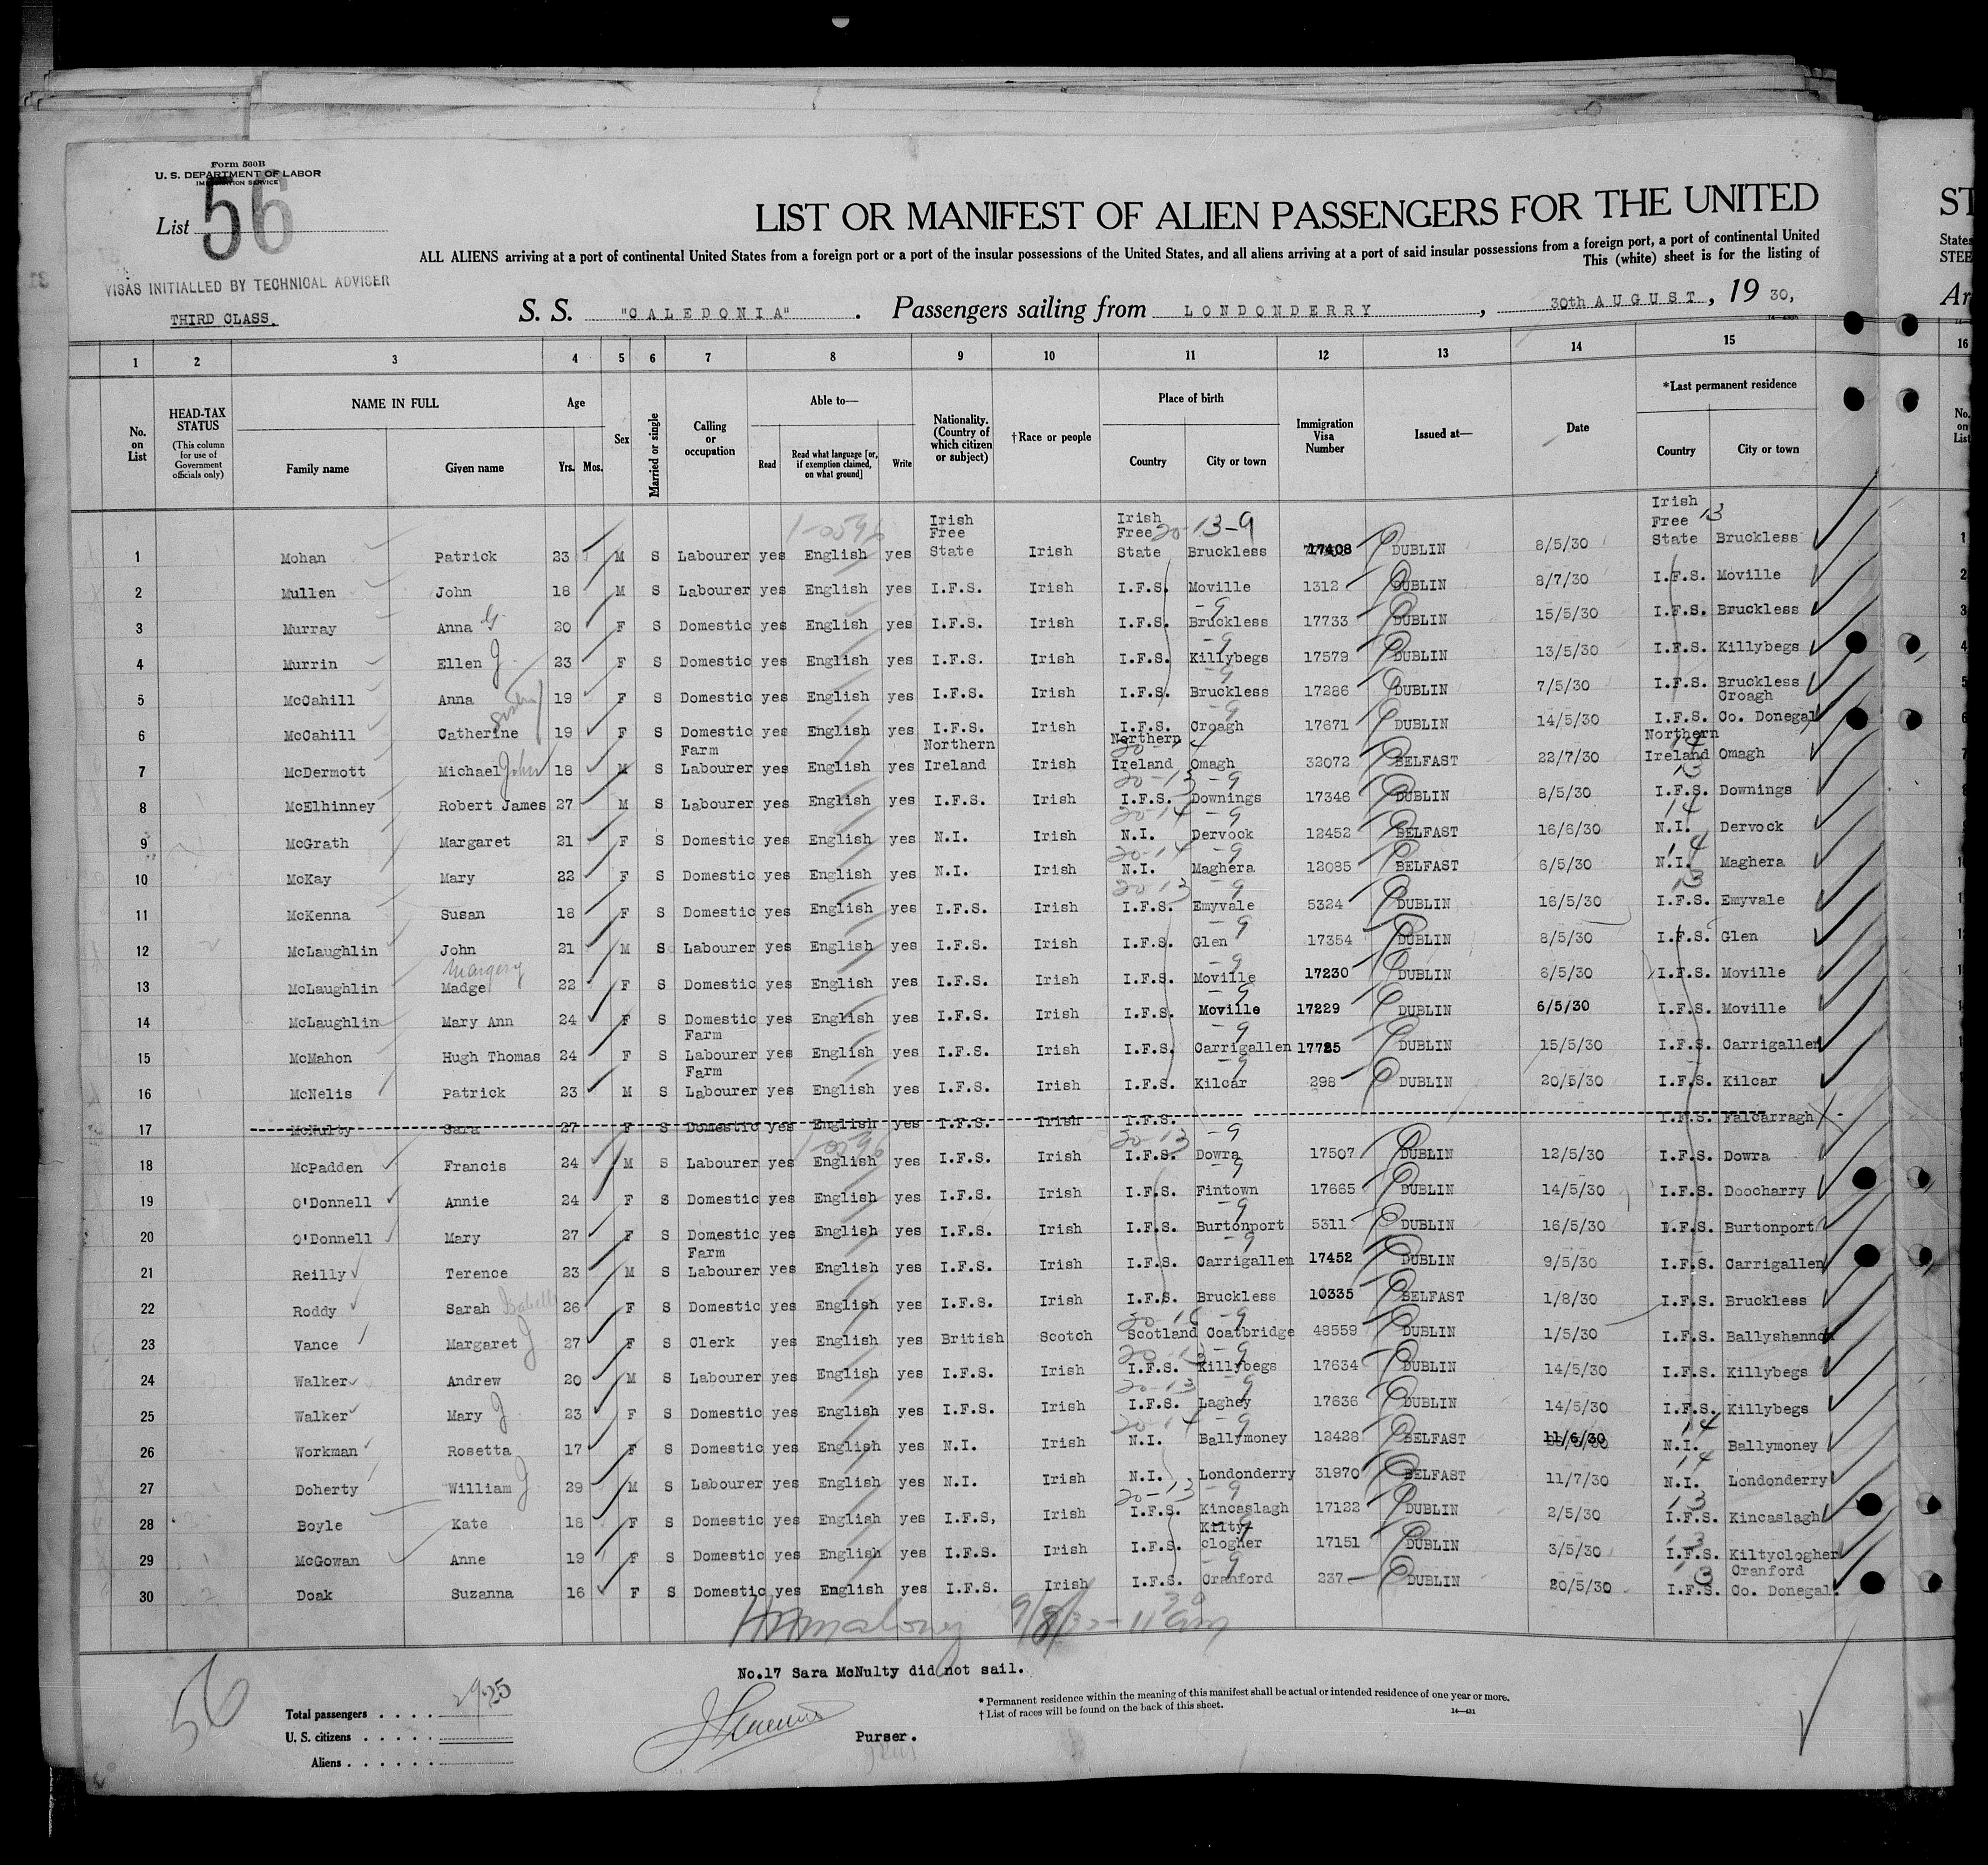 Form 500B
U. S. DEPARTMENT OF LABOR
IMMIGRATION SERVICE
List 56
LIST OR MANIFEST OF ALIEN PASSENGERS FOR THE UNITED
ST
ALL ALIENS arriving at a port of continental United States from a foreign port or a port of the insular possessions of the United States, and all aliens arriving at a port of said insular possessions from a foreign port, a port of continental United
States
This (white) sheet is for the listing of
STEE
VISAS INITIALLED BY TECHNICAL ADVISER
THIRD CLASS.
S. S. "CALEDONIA" . Passengers sailing from LONDONDERRY , 30th AUGUST , 19 30,
Ar
1 2 3 4 5 6 7 8 9 10 11 12 13 14 15 16
No. on List
HEAD-TAX STATUS (This column for use of Government officials only)
NAME IN FULL Family name Given name
Age Yrs. Mos.
Sex
Married or single
Calling or occupation
Able to— Read Read what language [or, if exemption claimed, on what ground] Write
Nationality. (Country of which citizen or subject)
†Race or people
Place of birth Country City or town
Immigration Visa Number
Issued at—
Date
*Last permanent residence Country City or town
No. on List
1-0596 20-13-9 13
1 Mohan Patrick 23 M S Labourer yes English yes Irish Free State Irish Irish Free State Bruckless 17408 DUBLIN 8/5/30 Irish Free State Bruckless
2 Mullen John 18 M S Labourer yes English yes I.F.S. Irish I.F.S. Moville 1312 DUBLIN 8/7/30 I.F.S. Moville
3 Murray Anna G 20 F S Domestic yes English yes I.F.S. Irish I.F.S. Bruckless 17733 DUBLIN 15/5/30 I.F.S. Bruckless
4 Murrin Ellen J 23 F S Domestic yes English yes I.F.S. Irish I.F.S. Killybegs 17579 DUBLIN 13/5/30 I.F.S. Killybegs
5 McCahill Anna 19 F S Domestic yes English yes I.F.S. Irish I.F.S. Bruckless 17286 DUBLIN 7/5/30 I.F.S. Bruckless
6 McCahill Catherine 19 F S Domestic yes English yes I.F.S. Irish I.F.S. Croagh 17671 DUBLIN 14/5/30 I.F.S. Croagh Co. Donegal
7 McDermott Michael John 18 M S Farm Labourer yes English yes Northern Ireland Irish Northern Ireland Omagh 32072 BELFAST 22/7/30 Northern Ireland Omagh
8 McElhinney Robert James 27 M S Labourer yes English yes I.F.S. Irish I.F.S. Downings 17346 DUBLIN 8/5/30 I.F.S. Downings
9 McGrath Margaret 21 F S Domestic yes English yes N.I. Irish N.I. Dervock 12452 BELFAST 16/6/30 N.I. Dervock
10 McKay Mary 22 F S Domestic yes English yes N.I. Irish N.I. Maghera 12085 BELFAST 6/5/30 N.I. Maghera
11 McKenna Susan 18 F S Domestic yes English yes I.F.S. Irish I.F.S. Emyvale 5324 DUBLIN 16/5/30 I.F.S. Emyvale
12 McLaughlin John 21 M S Labourer yes English yes I.F.S. Irish I.F.S. Glen 17354 DUBLIN 8/5/30 I.F.S. Glen
Margery
13 McLaughlin Madge 22 F S Domestic yes English yes I.F.S. Irish I.F.S. Moville 17230 DUBLIN 6/5/30 I.F.S. Moville
14 McLaughlin Mary Ann 24 F S Domestic yes English yes I.F.S. Irish I.F.S. Moville 17229 DUBLIN 6/5/30 I.F.S. Moville
15 McMahon Hugh Thomas 24 F S Farm Labourer yes English yes I.F.S. Irish I.F.S. Carrigallen 17725 DUBLIN 15/5/30 I.F.S. Carrigallen
16 McNelis Patrick 23 M S Farm Labourer yes English yes I.F.S. Irish I.F.S. Kilcar 298 DUBLIN 20/5/30 I.F.S. Kilcar
17 McNulty Sara 27 F S Domestic yes English yes I.F.S. Irish I.F.S. I.F.S. Falcarragh
18 McPadden Francis 24 M S Labourer yes English yes I.F.S. Irish I.F.S. Dowra 17507 DUBLIN 12/5/30 I.F.S. Dowra
19 O'Donnell Annie 24 F S Domestic yes English yes I.F.S. Irish I.F.S. Fintown 17665 DUBLIN 14/5/30 I.F.S. Doocharry
20 O'Donnell Mary 27 F S Domestic yes English yes I.F.S. Irish I.F.S. Burtonport 5311 DUBLIN 16/5/30 I.F.S. Burtonport
21 Reilly Terence 23 M S Farm Labourer yes English yes I.F.S. Irish I.F.S. Carrigallen 17452 DUBLIN 9/5/30 I.F.S. Carrigallen
22 Roddy Sarah Isabella 26 F S Domestic yes English yes I.F.S. Irish I.F.S. Bruckless 10335 BELFAST 1/8/30 I.F.S. Bruckless
23 Vance Margaret J 27 F S Clerk yes English yes British Scotch Scotland Coatbridge 48559 DUBLIN 1/5/30 I.F.S. Ballyshannon
24 Walker Andrew 20 M S Labourer yes English yes I.F.S. Irish I.F.S. Killybegs 17634 DUBLIN 14/5/30 I.F.S. Killybegs
25 Walker Mary J 23 F S Domestic yes English yes I.F.S. Irish I.F.S. Laghey 17636 DUBLIN 14/5/30 I.F.S. Killybegs
26 Workman Rosetta 17 F S Domestic yes English yes N.I. Irish N.I. Ballymoney 12428 BELFAST 11/6/30 N.I. Ballymoney
27 Doherty William J 29 M S Labourer yes English yes N.I. Irish N.I. Londonderry 31970 BELFAST 11/7/30 N.I. Londonderry
28 Boyle Kate 18 F S Domestic yes English yes I.F.S, Irish I.F.S. Kincaslagh 17122 DUBLIN 2/5/30 I.F.S. Kincaslagh
29 McGowan Anne 19 F S Domestic yes English yes I.F.S. Irish I.F.S. Kilty-clogher 17151 DUBLIN 3/5/30 I.F.S. Kiltyclogher
30 Doak Suzanna 16 F S Domestic yes English yes I.F.S. Irish I.F.S. Cranford 237 DUBLIN 20/5/30 I.F.S. Cranford Co. Donegal.
No.17 Sara McNulty did not sail.
56
Total passengers . . . .
U. S. citizens . . . . . .
Aliens . . . . . .
Purser.
* Permanent residence within the meaning of this manifest shall be actual or intended residence of one year or more.
† List of races will be found on the back of this sheet.
14—431